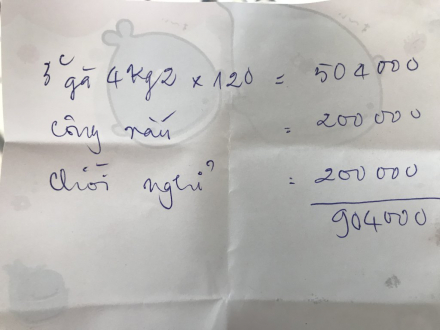 3c gà 4kg2 x 120 = 504000
công nấu = 200 000
chối nghỉ = 200 000
904000